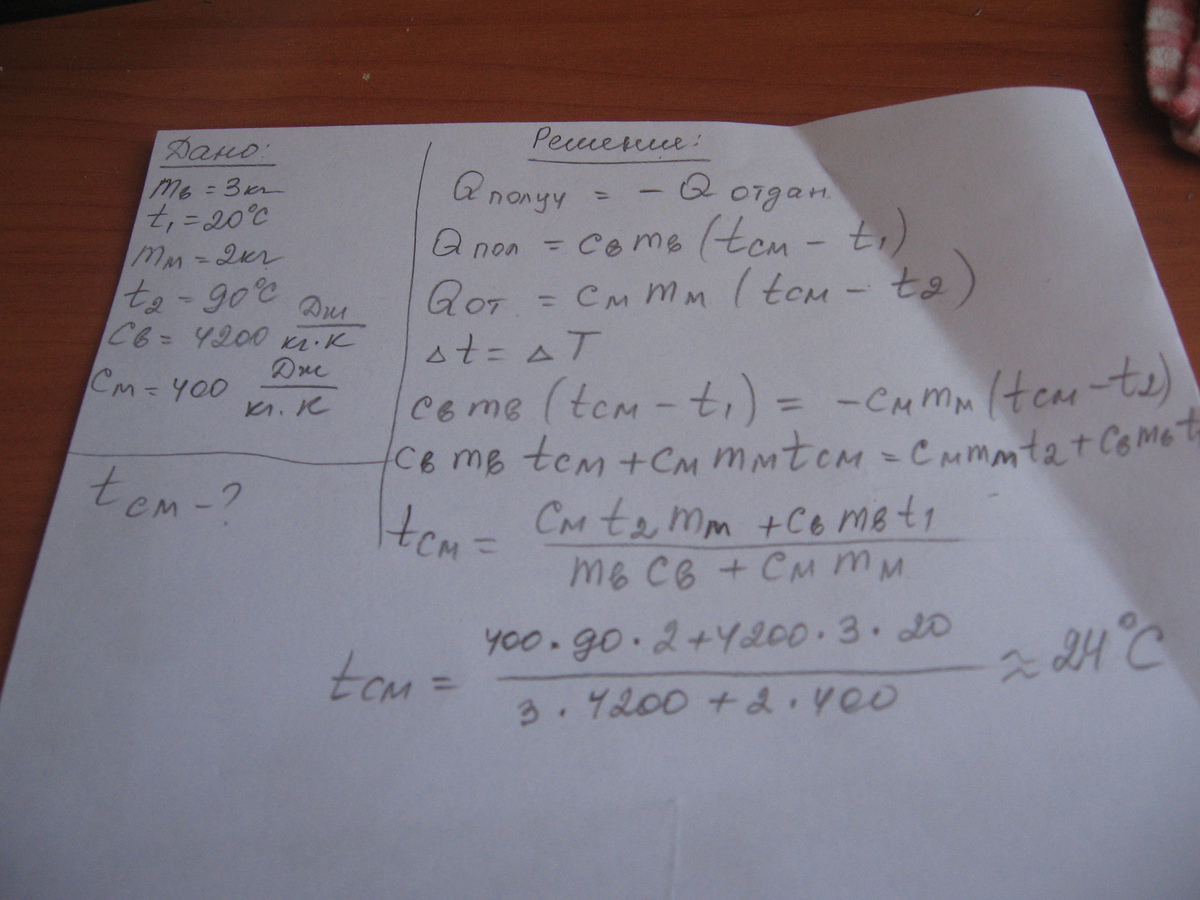 Дано:
mв = 3кг
t₁ = 20°C
mм = 2кг
t₂ = 90°C
Cв = 4200 Дж/кг·К
Cм = 400 Дж/кг·К
tсм - ?
Решение:
Qполуч = - Qотдан.
Qпол = Cв mв (tсм - t₁)
Qот = Cм mм (tсм - t₂)
Δt = ΔT
Cв mв (tсм - t₁) = -Cм mм (tсм - t₂)
Cв mв tсм + Cм mм tсм = Cм mм t₂ + Cв mв t
tсм = (Cм t₂ mм + Cв mв t₁) / (mв Cв + Cм mм)
tсм = (400·90·2+4200·3·20) / (3·4200+2·400) ≈ 24°C